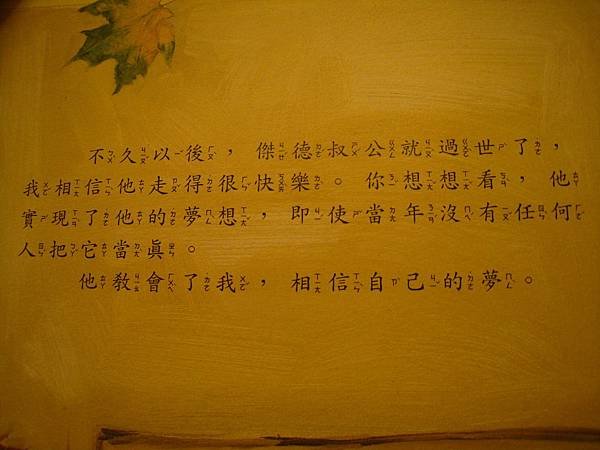 不久以後，傑德叔公就過世了，
我相信他走得很快樂。你想想看，他
實現了他的夢想，即使當年沒有任何
人把它當真。
他教會了我，相信自己的夢。